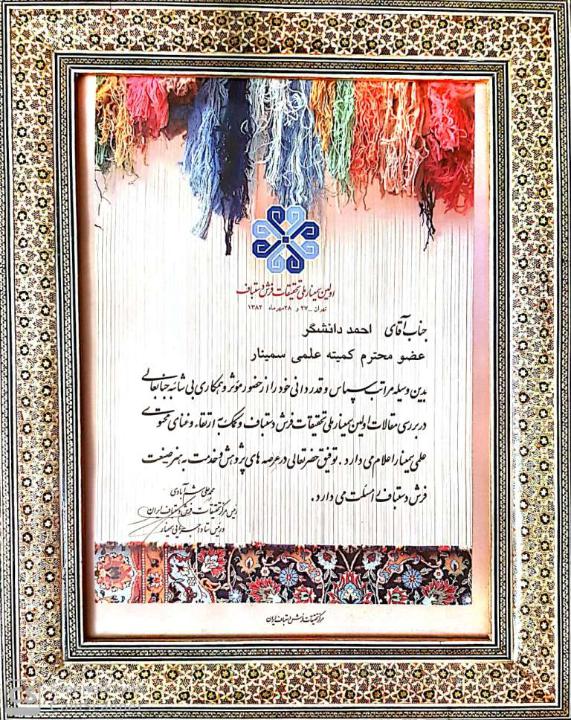 اولین سمینار ملی تحقیقات فرش دستباف
تهران - ۲۷ و ۲۸ مهر ماه ۱۳۸۲
جناب آقای احمد دانشگر
عضو محترم کمیته علمی سمینار
بدین وسیله مراتب سپاس و قدردانی خود را از حضور مؤثر و همکاری بی شائبه جنابعالی
در بررسی مقالات اولین سمینار ملی تحقیقات فرش دستباف و کمک به ارتقاء و غنای محتوی
علمی سمینار اعلام می دارد. توفیق حضرتعالی در عرصه های پژوهش و خدمت به هنر صنعت
فرش دستباف را مسئلت می دارد.
محمد علی
رئیس مرکز تحقیقات فرش دستباف ایران
و رئیس ستاد اجرایی سمینار
مرکز تحقیقات فرش دستباف ایران